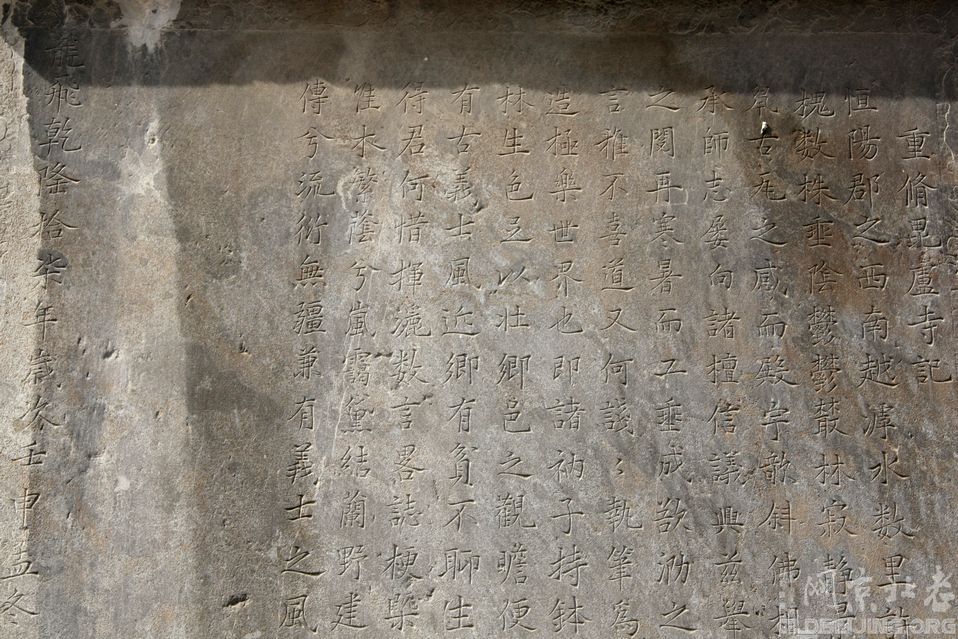 重脩毘盧寺記
恒陽郡之西南越滹水数里許
槐数株垂陰鬱鬱叢林寂静
古死之感而殿宇欹斜佛
承師志屡向諸檀信議興兹舉
之閡再寒暑而工垂成欲泐之
言雅不喜道又何諓諓執筆為
造極樂世界也即諸衲子持鉢
林生色足以壮鄉邑之觀瞻便
有古義士風近鄉有貧不聊生
得君何惜揮灑数言畧誌梗槩
惟木縈陰兮嵐靄黛結蘭野建
傳兮流衍無疆兼有義士之風
龍飛乾隆拾柒年歲次壬申孟冬
阿京扛老
OLDBEIJING.ORG